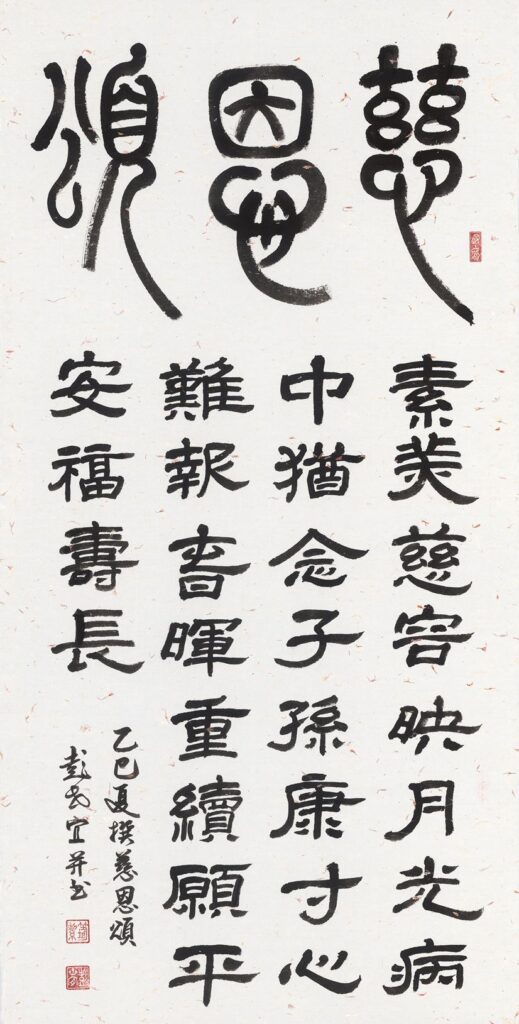 慈恩頌
素美慈容映月光病
中猶念子孫康寸心
難報春暉重續願平
安福壽長
乙巳夏撰慈恩頌
彭宜并书